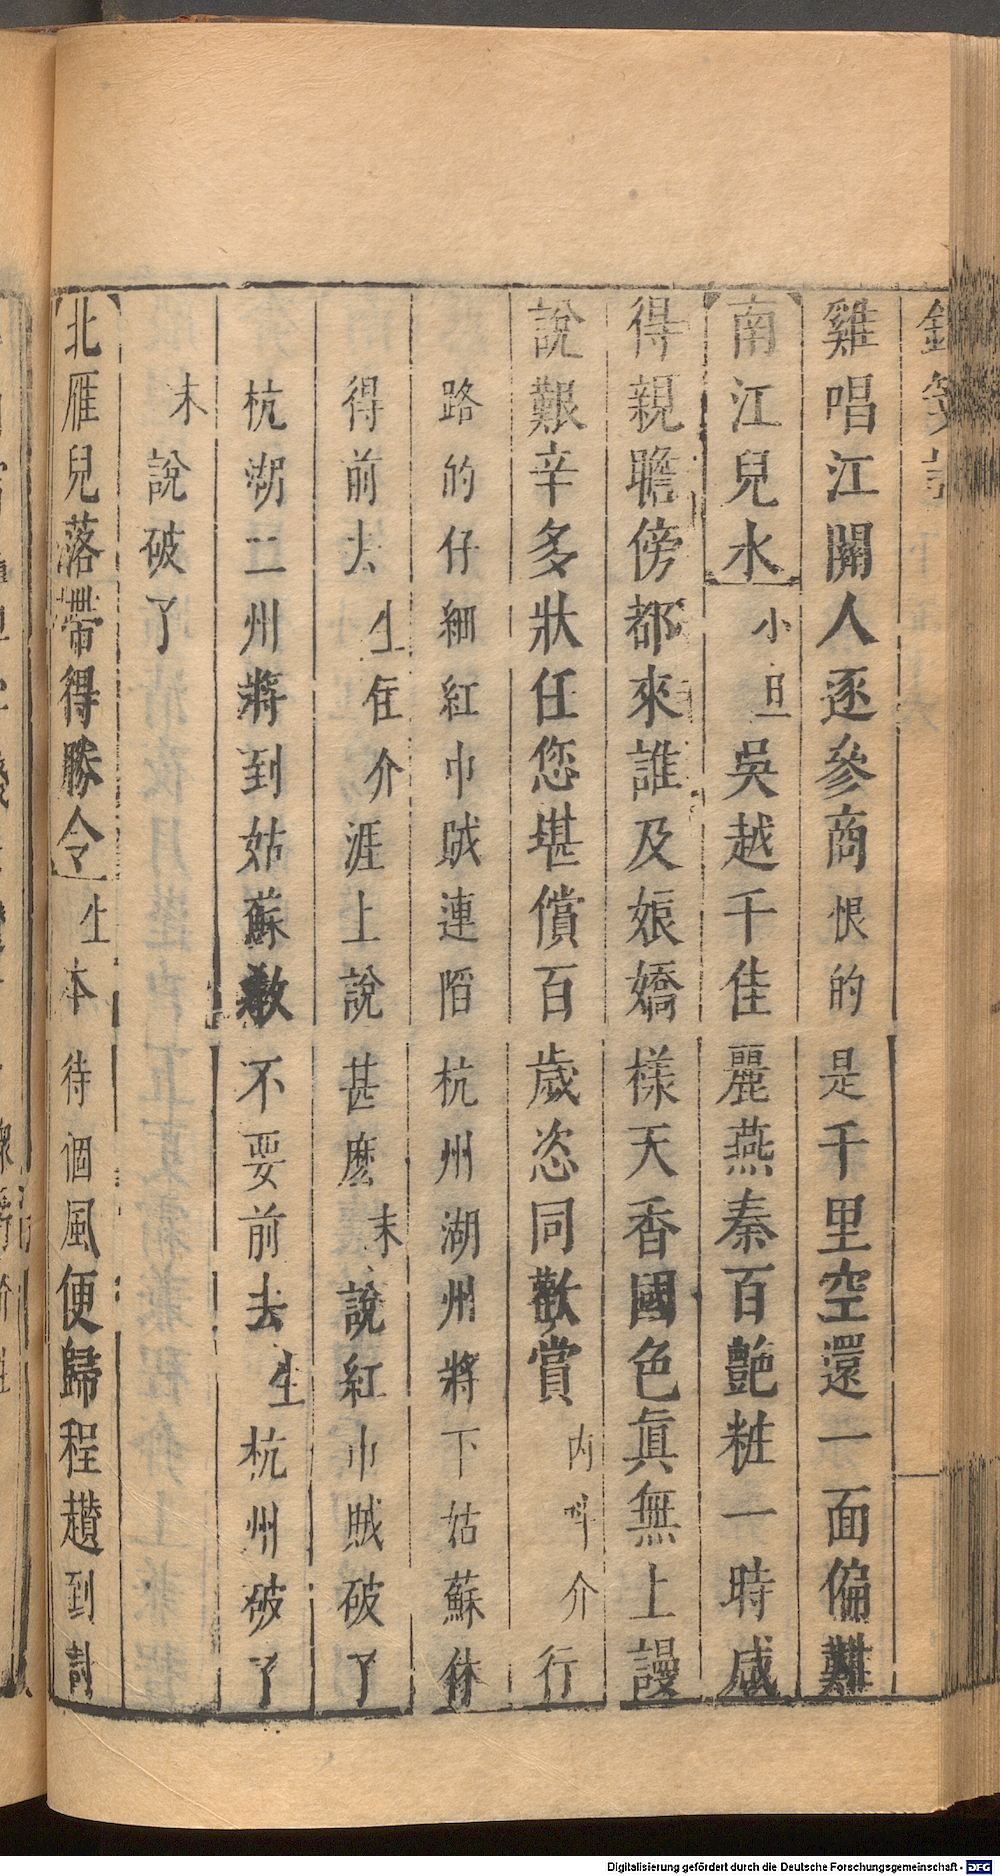 雞唱江關人逐參商恨的是千里空還一面偏難
【南江兒水】小旦吳越千佳麗燕秦百艷粧一時咸
得親瞻傍都來誰及娘嬌様天香國色眞無上謾
說艱辛多狀任您堪償百歲恣同歡賞內呌介行
路的仔細紅巾賊連陷杭州湖州將下姑蘇休
得前去生住介涯上說甚麽末說紅巾賊破了
杭湖二州將到姑蘇教不要前去生杭州破了
末說破了
【北雁兒落帶得勝令】生本待個風便歸程趲到
Digitalisierung gefördert durch die Deutsche Forschungsgemeinschaft - DFG